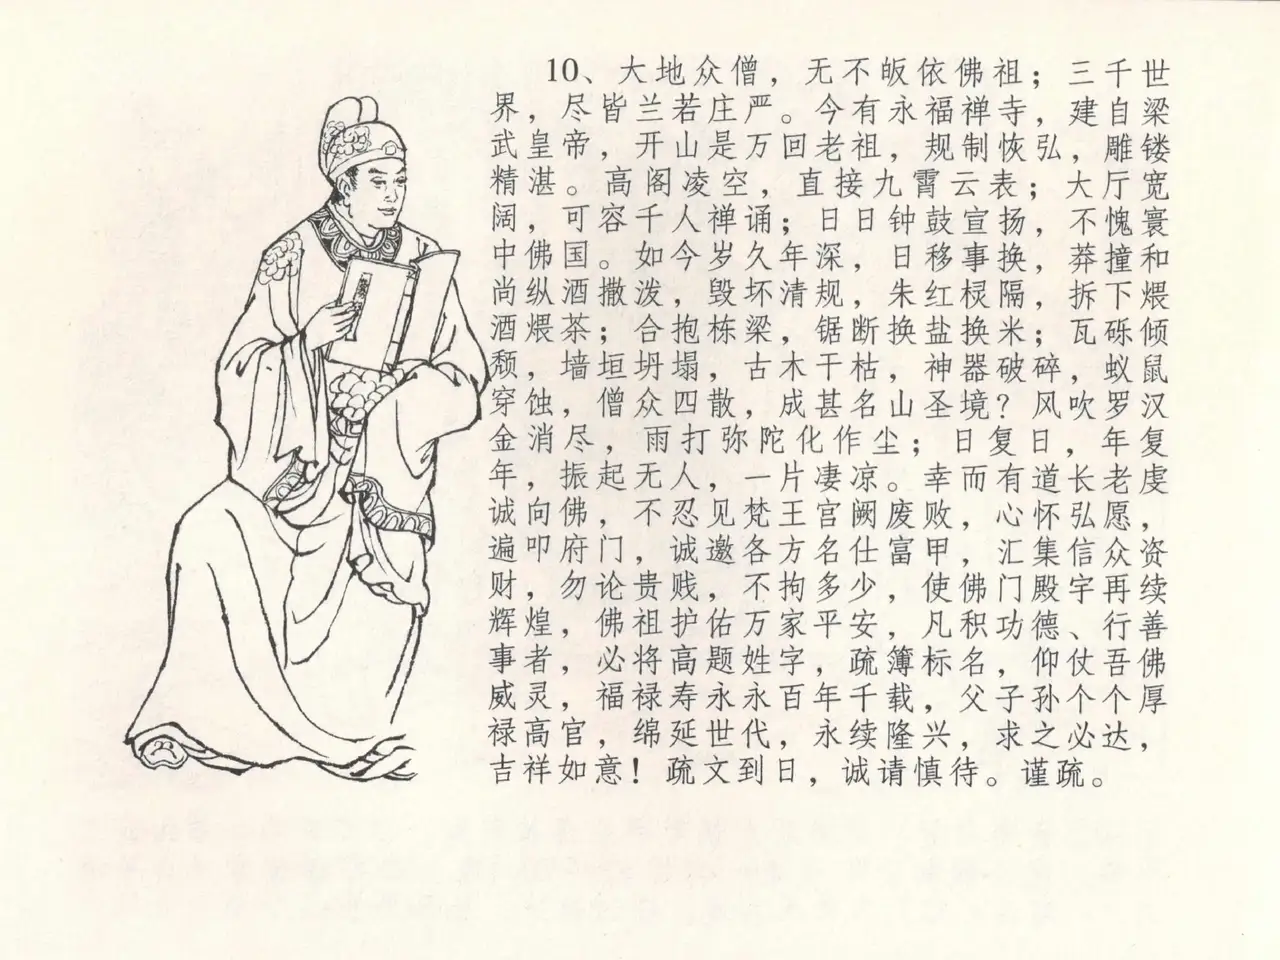 10、大地众僧，无不皈依佛祖；三千世
界，尽皆兰若庄严。今有永福禅寺，建自梁
武皇帝，开山是万回老祖，规制恢弘，雕镂
精湛。高阁凌空，直接九霄云表；大厅宽
阔，可容千人禅诵；日日钟鼓宣扬，不愧寰
中佛国。如今岁久年深，日移事换，莽撞和
尚纵酒撒泼，毁坏清规，朱红棂隔，拆下煨
酒煨茶；合抱栋梁，锯断换盐换米；瓦砾倾
颓，墙垣坍塌，古木干枯，神器破碎，蚁鼠
穿蚀，僧众四散，成甚名山圣境？风吹罗汉
金消尽，雨打弥陀化作尘；日复日，年复
年，振起无人，一片凄凉。幸而有道长老虔
诚向佛，不忍见梵王宫阙废败，心怀弘愿，
遍叩府门，诚邀各方名仕富甲，汇集信众资
财，勿论贵贱，不拘多少，使佛门殿宇再续
辉煌，佛祖护佑万家平安，凡积功德、行善
事者，必将高题姓字，疏簿标名，仰仗吾佛
威灵，福禄寿永永百年千载，父子孙个个厚
禄高官，绵延世代，永续隆兴，求之必达，
吉祥如意！疏文到日，诚请慎待。谨疏。